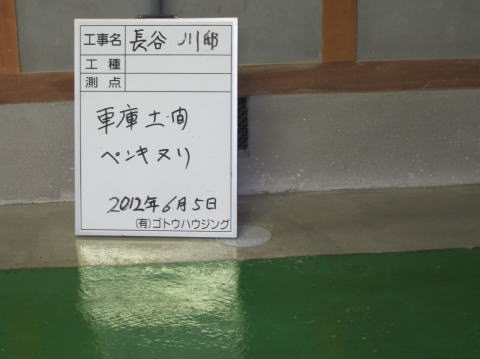 工事名 長谷川邸
工種
測点
車庫土間
ペンキヌリ
2012年6月5日
(有)ゴトウハウジング